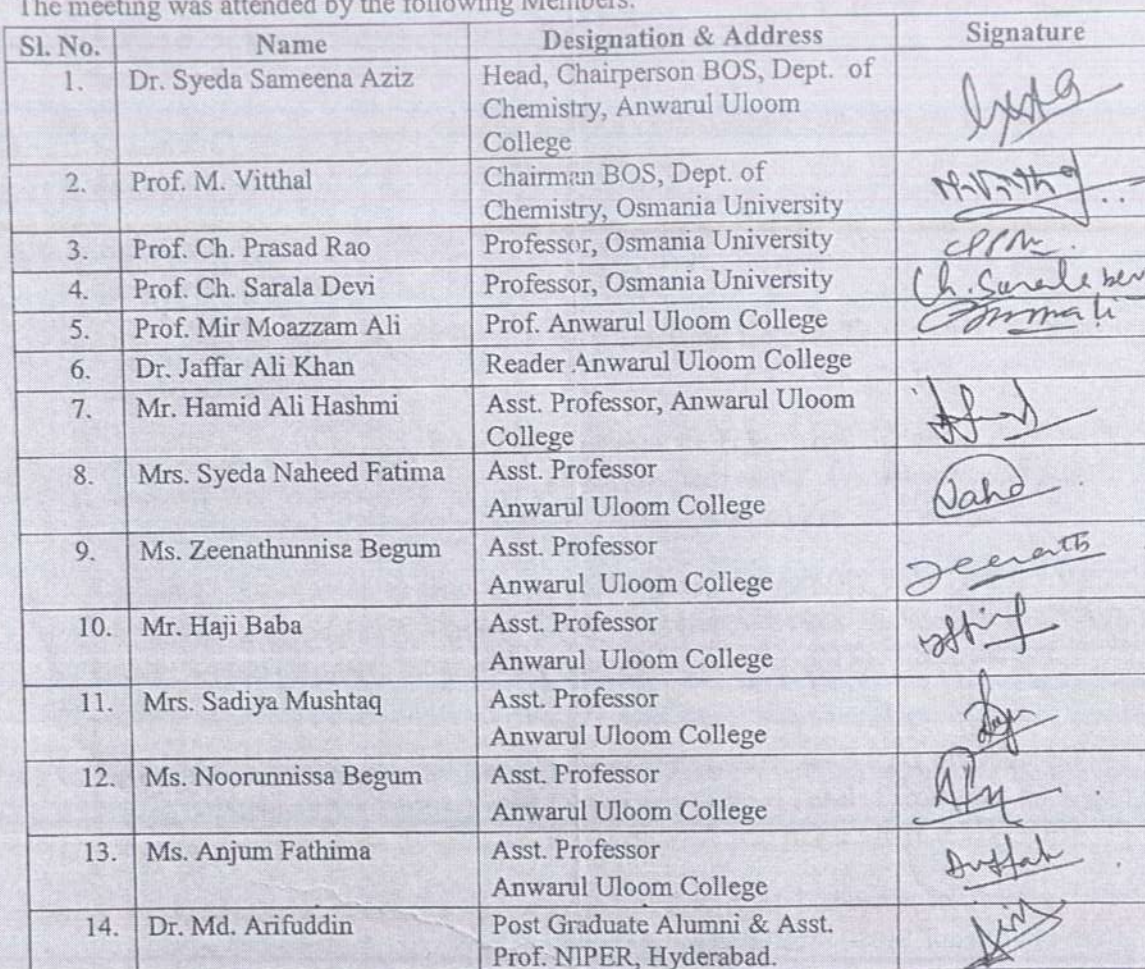 The meeting was attended by the following Members.
Sl. No. Name Designation & Address Signature
1. Dr. Syeda Sameena Aziz Head, Chairperson BOS, Dept. of
Chemistry, Anwarul Uloom
College
2. Prof. M. Vitthal Chairman BOS, Dept. of
Chemistry, Osmania University
3. Prof. Ch. Prasad Rao Professor, Osmania University
4. Prof. Ch. Sarala Devi Professor, Osmania University Ch. Sarala
5. Prof. Mir Moazzam Ali Prof. Anwarul Uloom College
6. Dr. Jaffar Ali Khan Reader Anwarul Uloom College
7. Mr. Hamid Ali Hashmi Asst. Professor, Anwarul Uloom
College
8. Mrs. Syeda Naheed Fatima Asst. Professor
Anwarul Uloom College
9. Ms. Zeenathunnisa Begum Asst. Professor
Anwarul Uloom College Zeenath
10. Mr. Haji Baba Asst. Professor
Anwarul Uloom College
11. Mrs. Sadiya Mushtaq Asst. Professor
Anwarul Uloom College
12. Ms. Noorunnissa Begum Asst. Professor
Anwarul Uloom College
13. Ms. Anjum Fathima Asst. Professor
Anwarul Uloom College
14. Dr. Md. Arifuddin Post Graduate Alumni & Asst.
Prof. NIPER, Hyderabad.